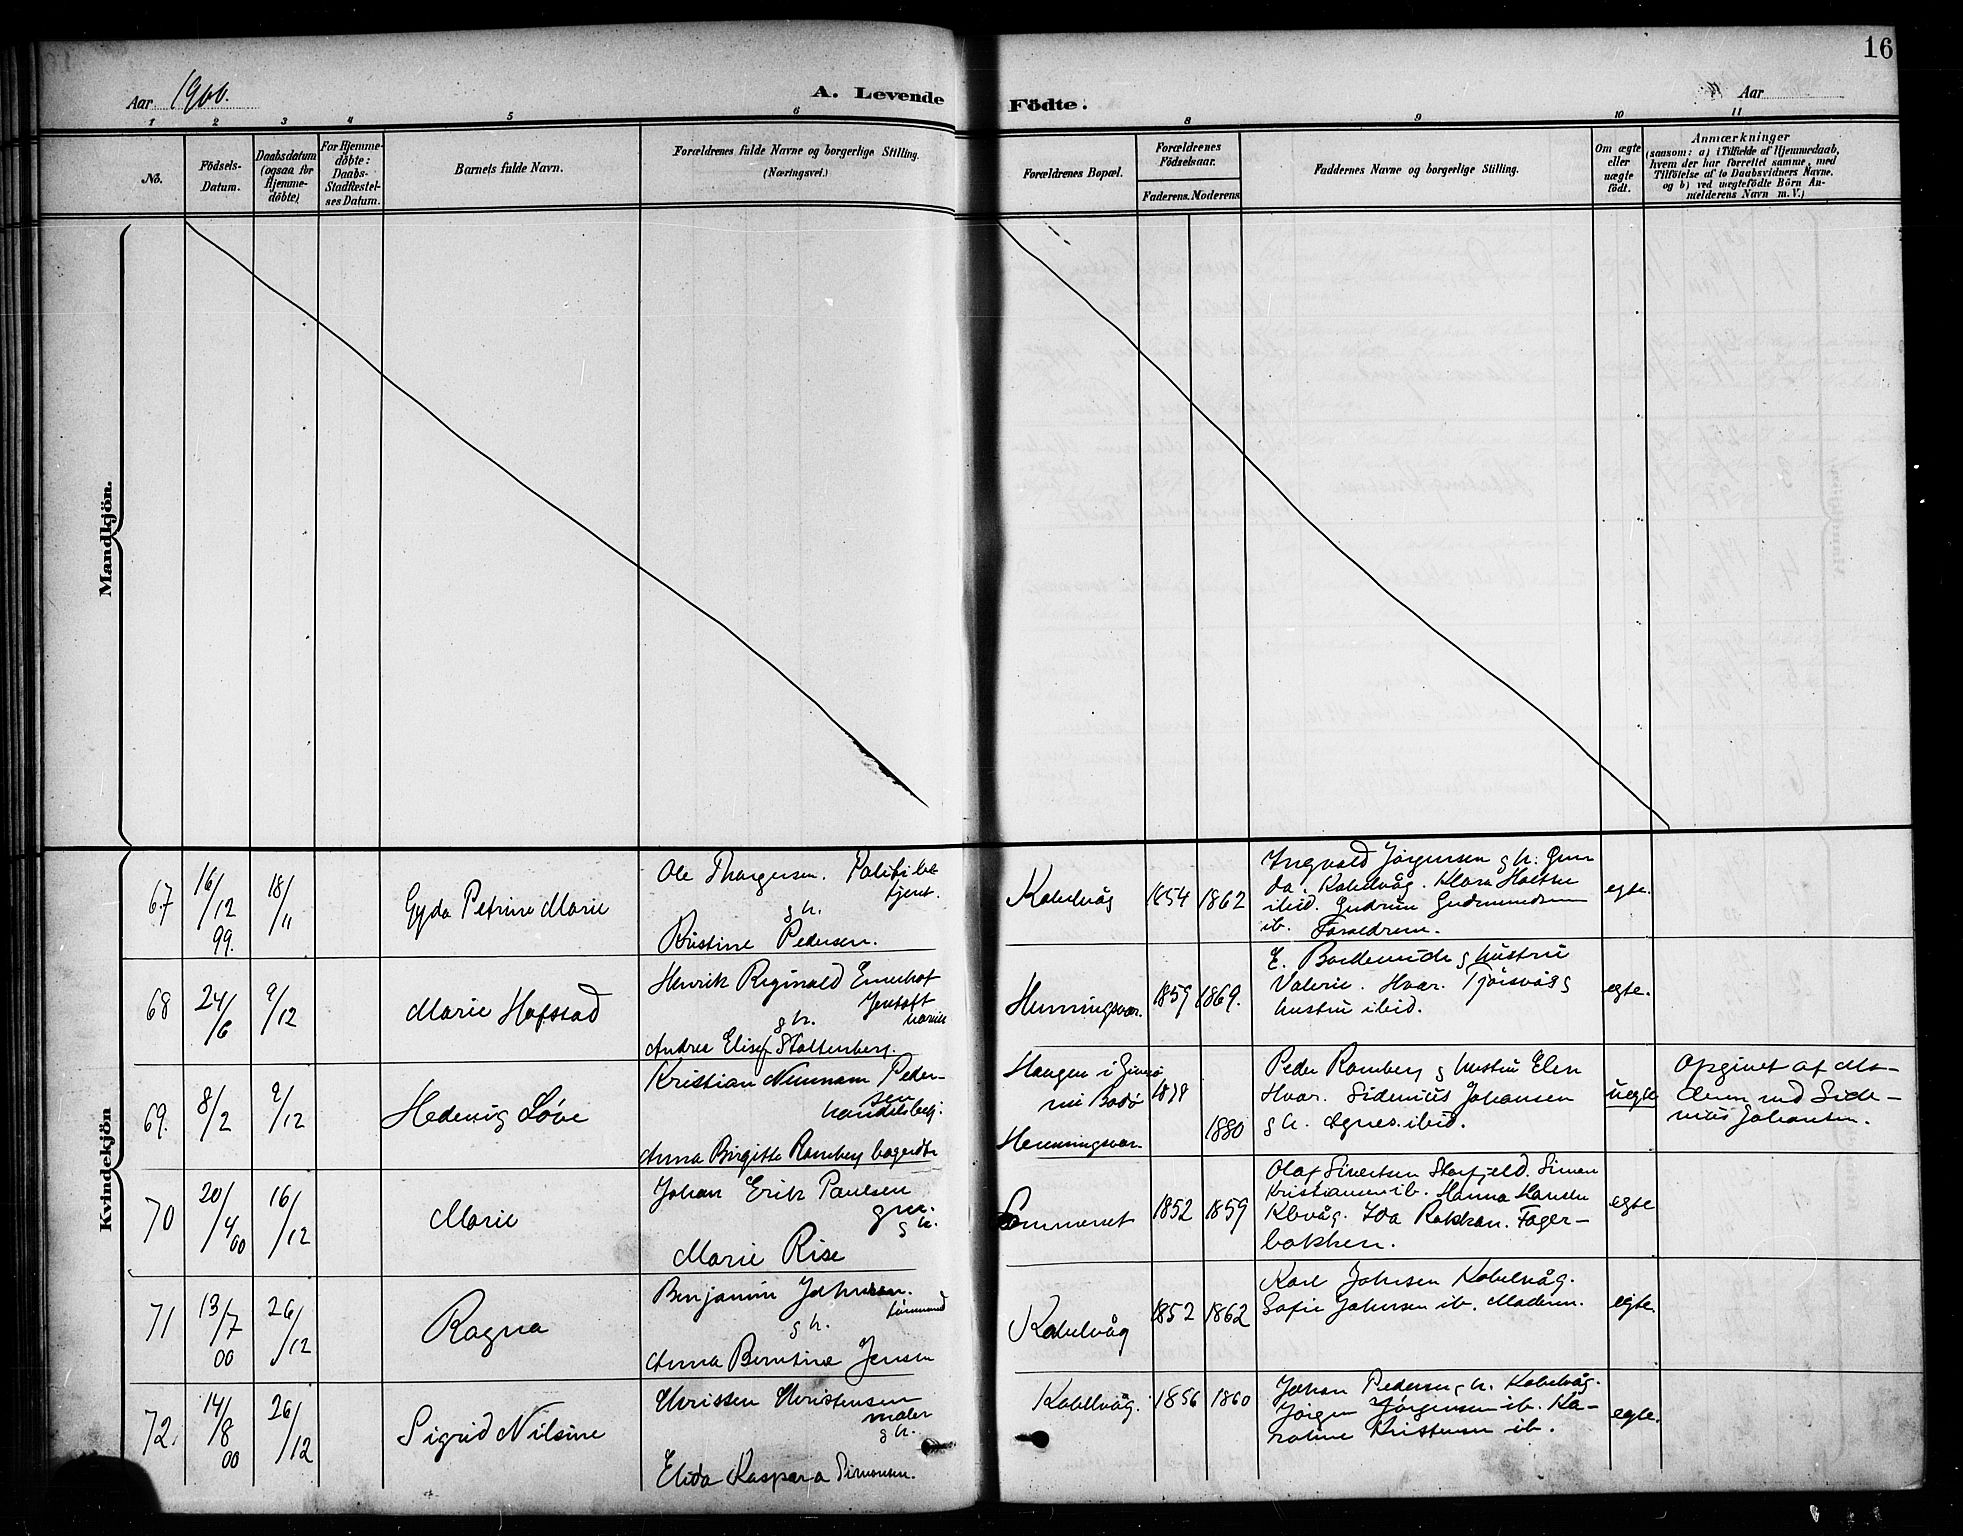 16
Aar 1900.
A. Levende Födte.
Aar
1 2 3 4 5 6 8 9 10 11
No.
Födsels-Datum.
Daabsdatum (ogsaa for Hjemmedöbte)
For Hjemmedöbte: Daabs-Stadfæstelses Datum.
Barnets fulde Navn.
Forældrenes fulde Navne og borgerlige Stilling.
(Næringsvei.)
Forældrenes Bopæl.
Forældrenes Födselsaar.
Faderens. Moderens
Faddernes Navne og borgerlige Stilling.
Om ægte eller uægte födt.
Anmærkninger
(saasom: a) i Tilfælde af Hjemmedaab, hvem der har forrettet samme, med Tilföielse af to Daabsvidners Navne. og b) ved uægtefödte Börn Anmelderens Navn m. V.)
Mandkjön.
Kvindekjön
67 16/12 99. 18/11 Gyda Petrine Marie
Ole Thorgersen. Politibetjent.
g h.
Kristine Pedersen.
Kabelvåg 1854 1862
Ingvald Jørgensen g h. Gunda. Kabelvåg. Klara Holthe
ibid. Gudrun Gudmundsen
ib. Forældrene.
egte.
68 24/6 9/12 Marie Hofstad
Henrik Reginald
g h.
Andrea Elisef Stoltenberg.
Henningsvær. 1859 1869.
hustru
Valerie. Hvær. Tjørsvåg g
hustru ibid.
egte.
69. 8/2 9/12 Hedevig Løve
Kristian Neumann Pedersen
handelsbetj.
Anna Birgitte Romberg
Haugen i
Bodø 18
Henningsvær 1880
Peder Romberg g hustru Elen
Hvær. Sidenius Johansen
g h. Agnes. ibid.
uegte
Opgivet af Moderen ved Sidenius Johansen.
70 20/4 00 16/12 Marie
Johan Erik Paulsen
g h.
Marie Rise
Sommerset 1852 1859
Olaf Sivertsen Storfjeld. Simon
Kristiansen ib. Hanna Hansen
Kbvåg. Ida Rokkan. Fagerbakken.
egte
71 13/7 00 26/12 Ragna
Benjamin Johnsen.
tømmermd
g h.
Anna Berntine Jensen
Kabelvåg 1852 1862
Karl Johnsen Kabelvåg.
Sofie Johnsen ib. Moderen.
egte.
72. 14/8 00 26/12 Sigrid Nilsine
Christen Christensen
maler
g h.
Elida Kaspara Simonsen.
Kabelvåg. 1856 1860
Johan Pedersen g h. Kabelvåg.
Jörgen Jørgensen ib. Karoline Kristensen ib.
egte.